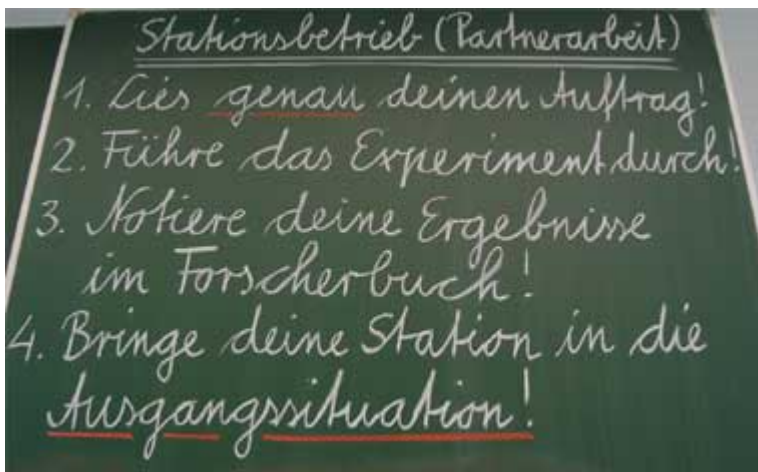 Stationsbetrieb (Partnerarbeit)
1. Lies genau deinen Auftrag!
2. Führe das Experiment durch!
3. Notiere deine Ergebnisse
im Forscherbuch!
4. Bringe deine Station in die
Ausgangssituation!